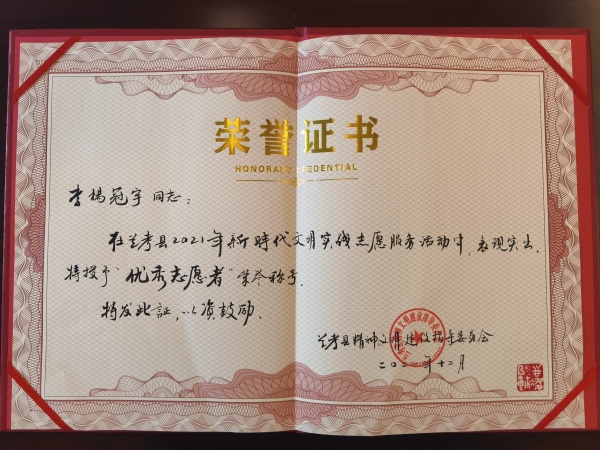 荣誉证书
HONORARY CREDENTIAL
李楊冠宇同志：
在兰考县2021年新時代文明实践志愿服务活动中，表现突出，
特授予“优秀志愿者”荣誉称号。
特发此証，以资鼓励。
兰考县精神文明建设指导委员会
二〇二一年十二月